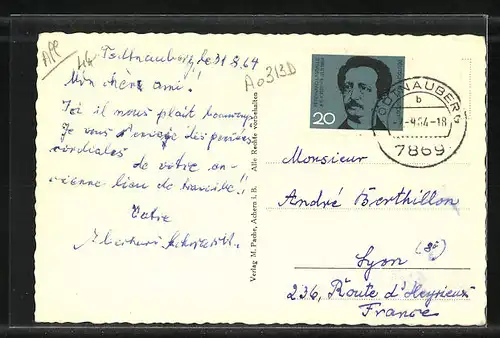 Todtnauberg, de 31.8.64
Mon chère ami!
Ici il nous plait beaucoup
Je vous envoie des pensées
cordiales
de votre an-
cienne lieu de travaile!!
Votre
A0313D
Verlag M. Pache, Achern i. B. Alle Rechte vorbehalten
20
TODTNAUBERG
b
-9.64-18
7869
Monsieur
André Berthillon
Lyon (8è)
236, Route d'Heyrieux
France